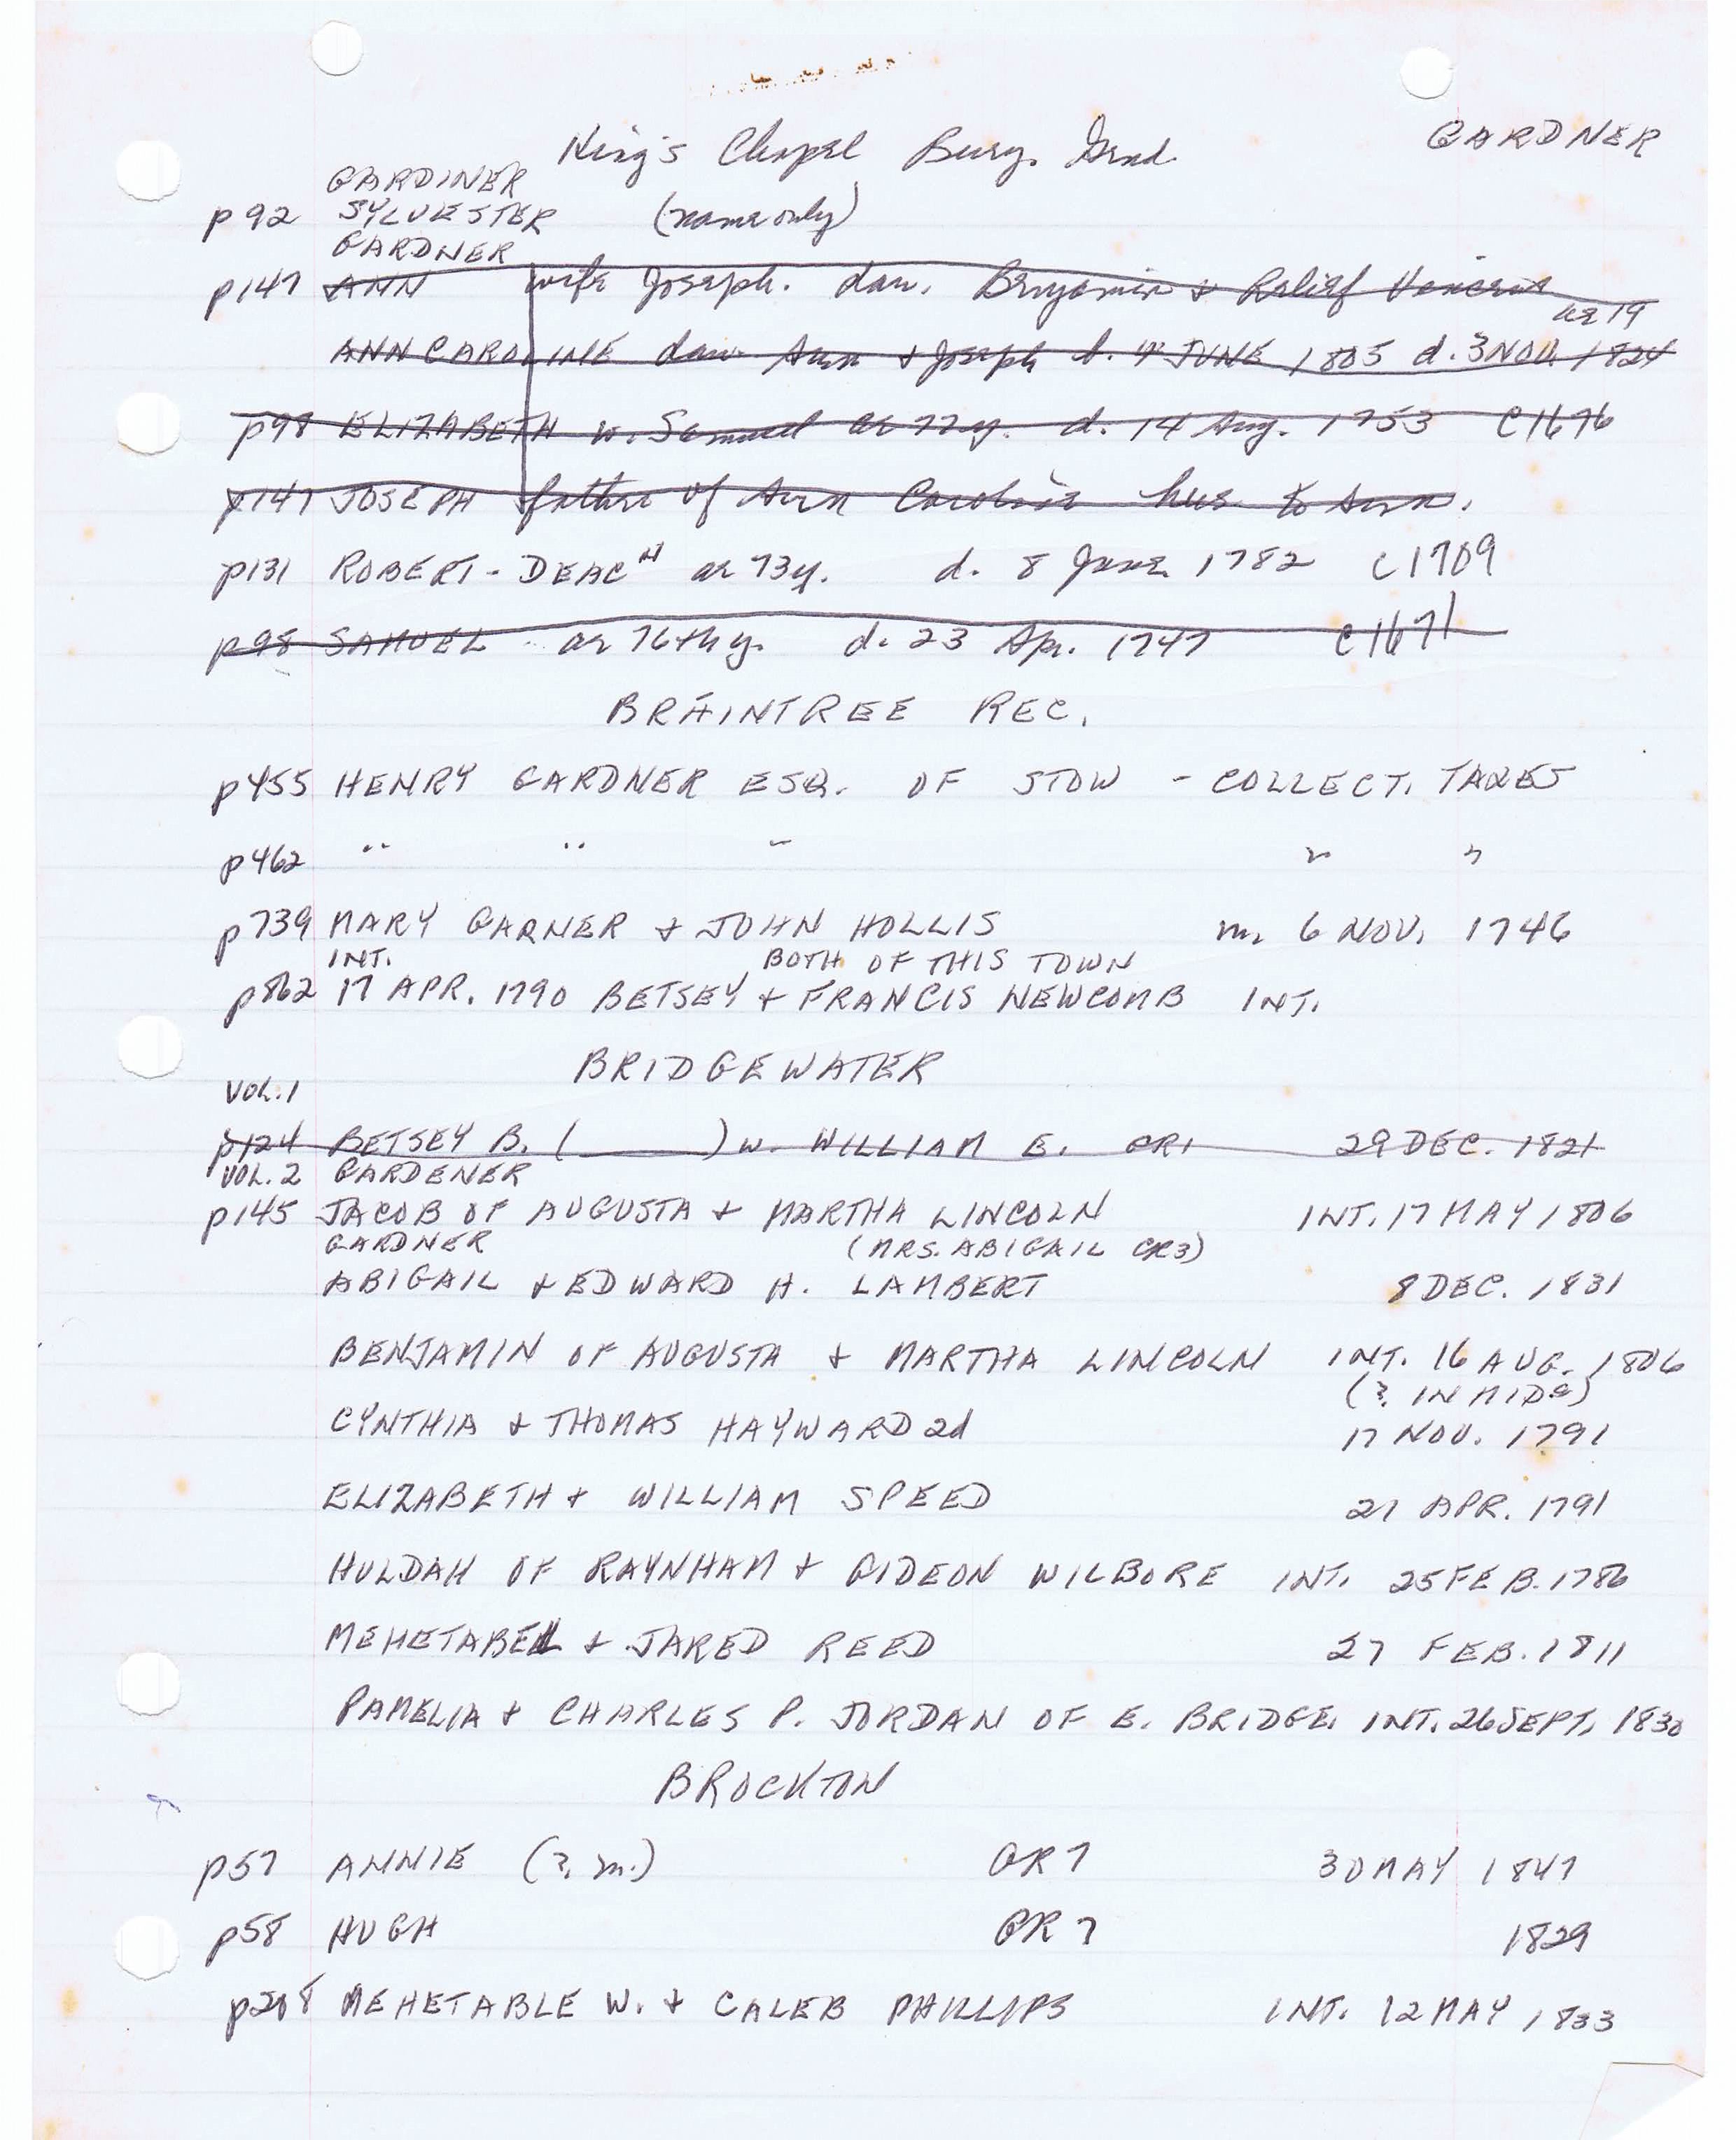 GARDNER
King's Chapel Bury. Grnd.
GARDINER
p92 SYLVESTER (name only)
GARDNER
p147 ANN wife Joseph. dau. Benjamin & Relief
ae 19
ANN CAROLINE dau. Ann & Joseph b. JUNE 1805 d. 3 NOV. 1824
p98 ELIZABETH w. Samuel ae 77y. d. 14 Aug. 1753 C1676
p147 JOSEPH father of Ann Caroline hus to Ann.
p131 ROBERT - DEACN ae 73y. d. 8 June 1782 c1709
p98 SAMUEL - ae 76th y. d. 23 Apr. 1747 c1671
BRAINTREE REC.
p455 HENRY GARDNER ESQ. OF STOW - COLLECT. TAXES
p462 " " " " "
p739 MARY GARNER & JOHN HOLLIS m. 6 NOV. 1746
INT. BOTH OF THIS TOWN
p862 17 APR. 1790 BETSEY & FRANCIS NEWCOMB INT.
BRIDGEWATER
VOL. 1
p124 BETSEY B. (______) w. WILLIAM E. CR1 29 DEC. 1821
VOL. 2 GARDENER
p145 JACOB OF AUGUSTA & MARTHA LINCOLN INT. 17 MAY 1806
GARDNER (MRS. ABIGAIL CR3)
ABIGAIL & EDWARD H. LAMBERT 8 DEC. 1831
BENJAMIN OF AUGUSTA & MARTHA LINCOLN INT. 16 AUG. 1806
(? IN MIDS)
CYNTHIA & THOMAS HAYWARD 2d 17 NOV. 1791
ELIZABETH & WILLIAM SPEED 27 APR. 1791
HULDAH OF RAYNHAM & GIDEON WILBORE INT. 25 FEB. 1786
MEHETABEL & JARED REED 27 FEB. 1811
PAMELIA & CHARLES P. JORDAN OF E. BRIDGE. INT. 26 SEPT. 1830
BROCKTON
p57 ANNIE (?. m.) GR7 30 MAY 1847
p58 HUGH GR7 1829
p208 MEHETABLE W. & CALEB PHILLIPS INT. 12 MAY 1833